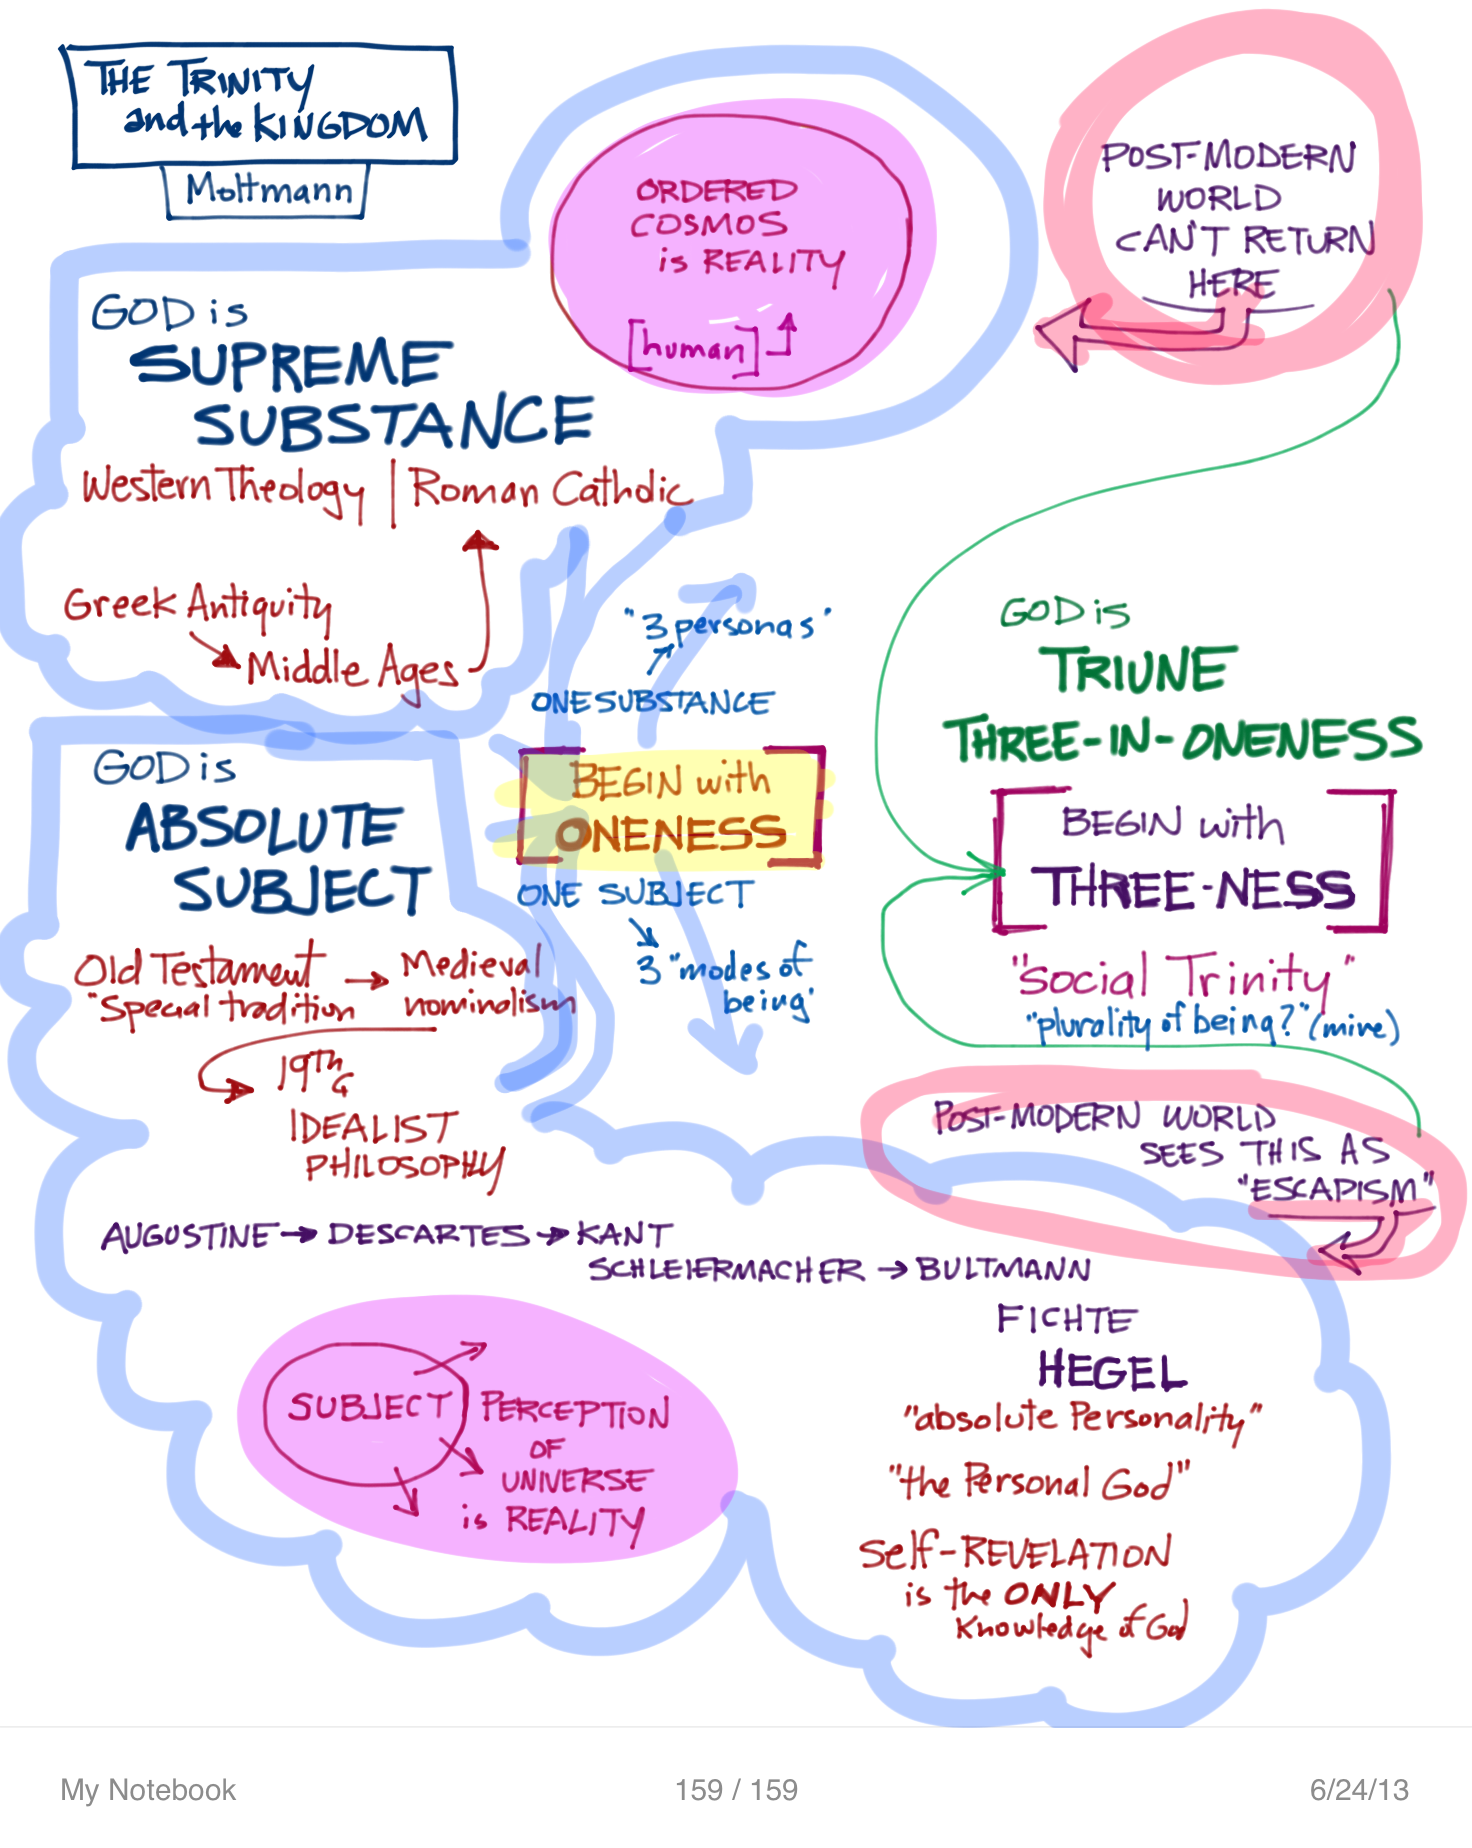 THE TRINITY
and the KINGDOM
Moltmann
ORDERED
COSMOS
is REALITY
[human]
POST-MODERN
WORLD
CAN'T RETURN
HERE
GOD is
SUPREME
SUBSTANCE
Western Theology | Roman Catholic
Greek Antiquity
Middle Ages
"3 personas"
ONE SUBSTANCE
BEGIN with
ONENESS
ONE SUBJECT
3 "modes of
being'
GOD is
TRIUNE
THREE-IN-ONENESS
BEGIN with
THREE-NESS
"Social Trinity"
"plurality of being?" (mine)
GOD is
ABSOLUTE
SUBJECT
Old Testament → Medieval
"Special tradition nominolism
19th C
IDEALIST
PHILOSOPHY
POST-MODERN WORLD
SEES THIS AS
"ESCAPISM"
AUGUSTINE → DESCARTES → KANT
SCHLEIERMACHER → BULTMANN
FICHTE
HEGEL
"absolute Personality"
"the Personal God"
Self-REVELATION
is the ONLY
Knowledge of God
SUBJECT
PERCEPTION
OF
UNIVERSE
is REALITY
My Notebook
159 / 159
6/24/13